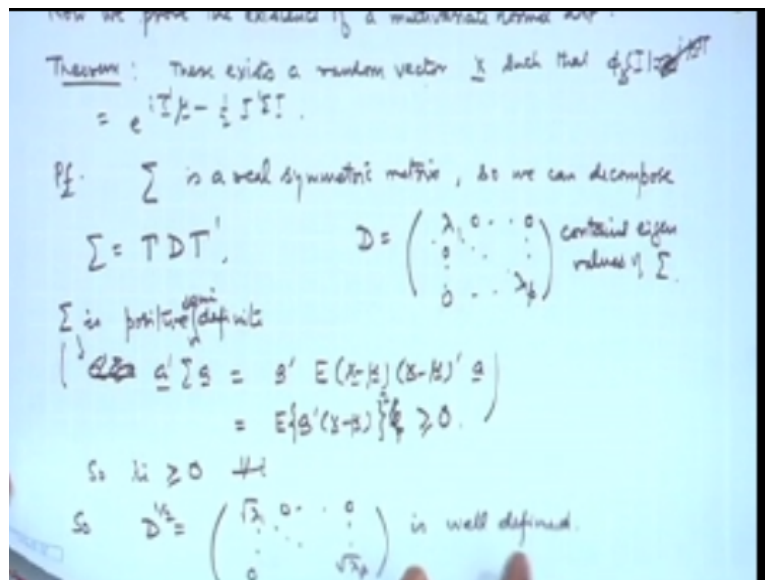 Now we prove the existence of a multivariate normal dist.
Theorem : There exists a random vector X such that ϕ_X(T)
= e^{iT'μ - ½ T'ΣT}.
Pf. Σ is a real symmetric matrix, so we can decompose
Σ = TDT', D = ( λ₁ 0 . . 0 0 . . . . . 0 . . λₚ ) contains eigen values of Σ.
Σ is positive semi definite
( a'Σa = a' E(X-μ)(X-μ)' a
= E{a'(X-μ)}² ≥ 0. )
So λi ≥ 0 ∀ i
So D^{1/2} = ( √λ₁ 0 . . 0 . . . 0 √λₚ ) is well defined.